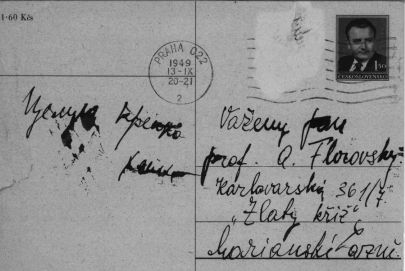 1·60 Kčs
PRAHA 022
1949
13-IX
20-21
2
1 50
ČESKOSLOVENSKO
Целую крепко
Vážený pan
prof. A. Florovský
Karlovarská 361/7.
„Zlatý kříž"
Mariánské Lázně.